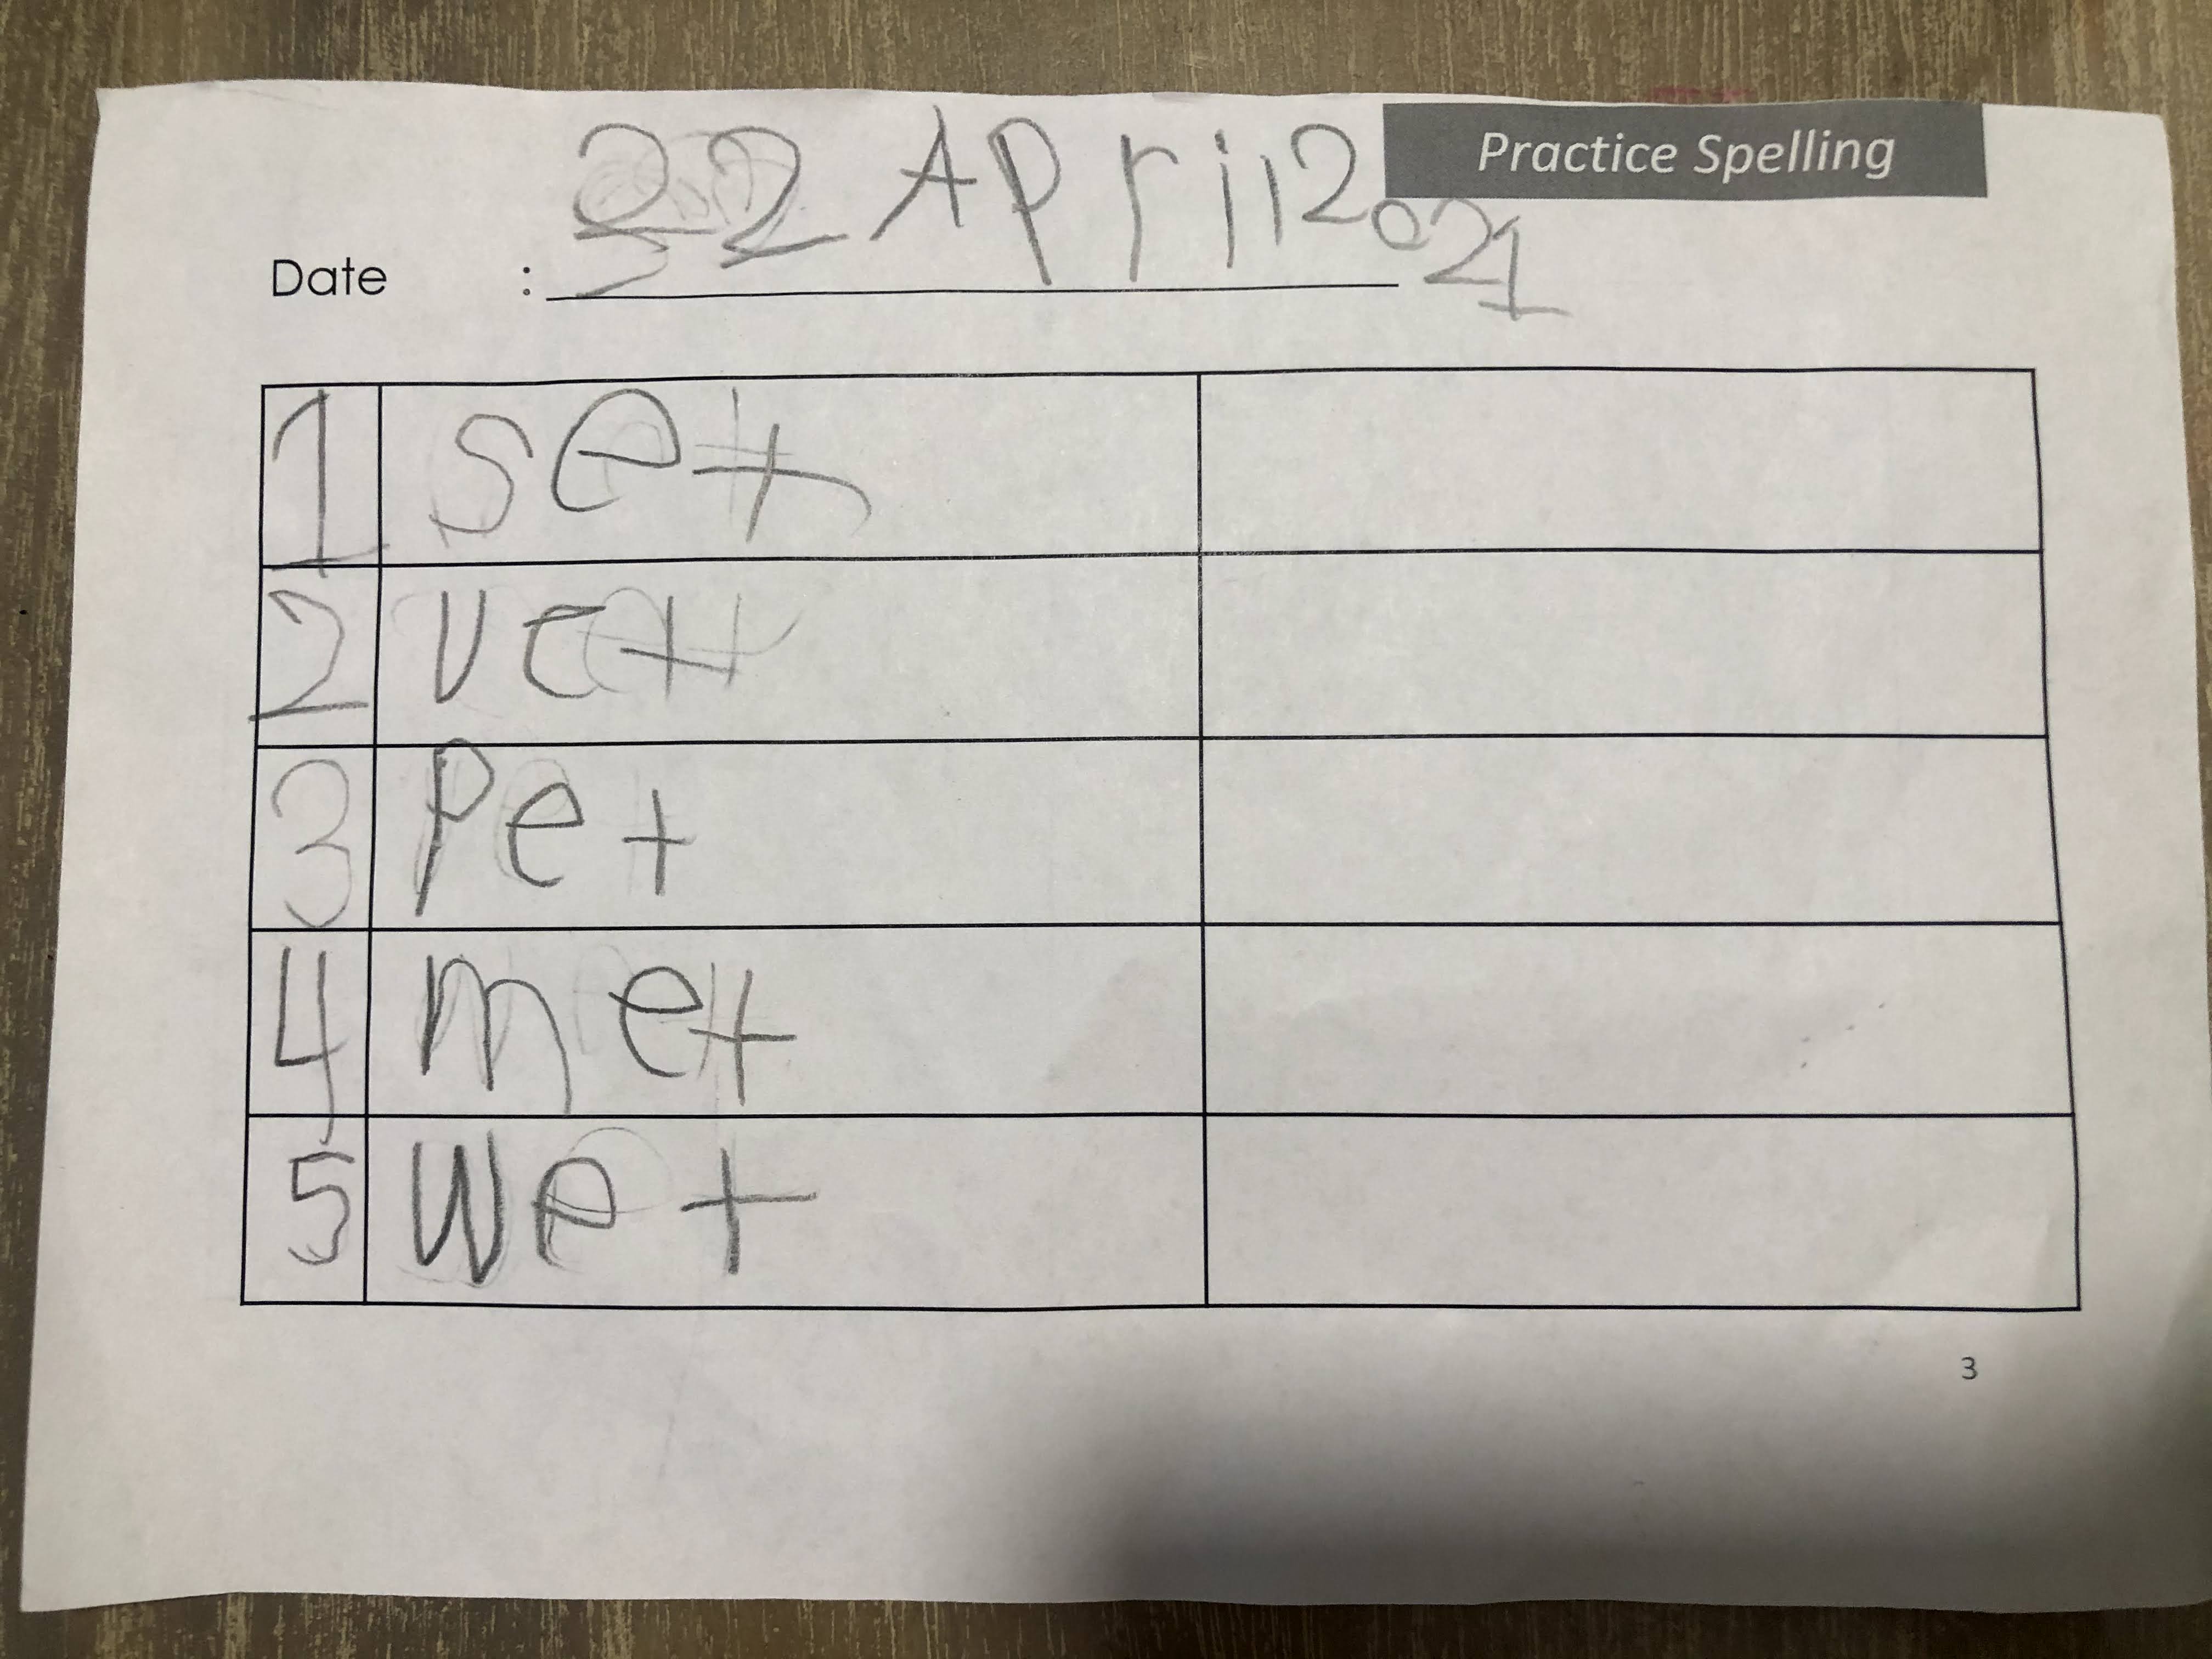 Practice Spelling
Date : 22 April 2021
1 set
2 vet
3 Pet
4 met
5 wet
3